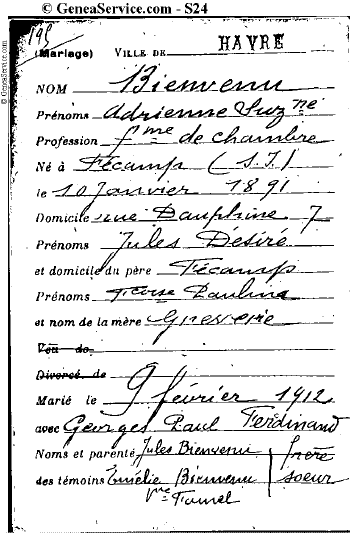 © GeneaService.com - S24
195
(Mariage) VILLE DE HAVRE
NOM Bienvenu
Prénoms Adrienne Suzne
Profession fme de chambre
Né à Fécamp (S.I)
le 10 Janvier 1891
Domicile rue Dauphine 7
Prénoms Jules Désiré
et domicile du père Fécamp
Prénoms Pauline
et nom de la mère
Veu de
Divorcé de
Marié le 9 février 1912
avec Georges Paul Ferdinand
Noms et parenté Jules Bienvenu frère
des témoins Emélie Bienvenu soeur
© GeneaService.com